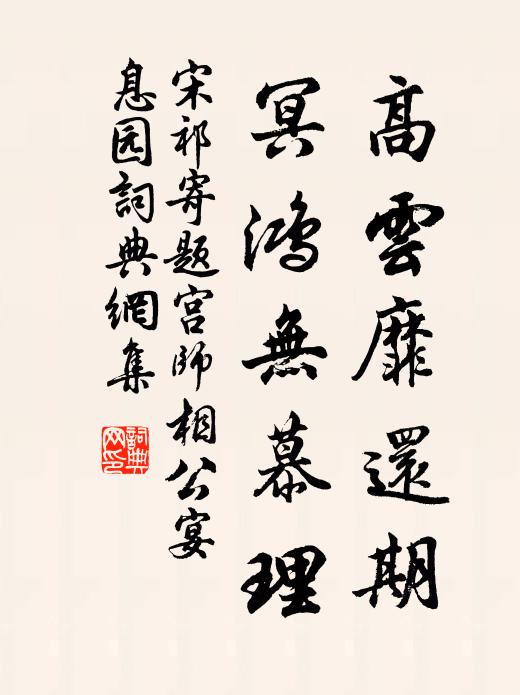 高雲靡還期
冥鴻無慕理
宋祁寄題宫師相公宴
息园詞典網集
詞典
网印